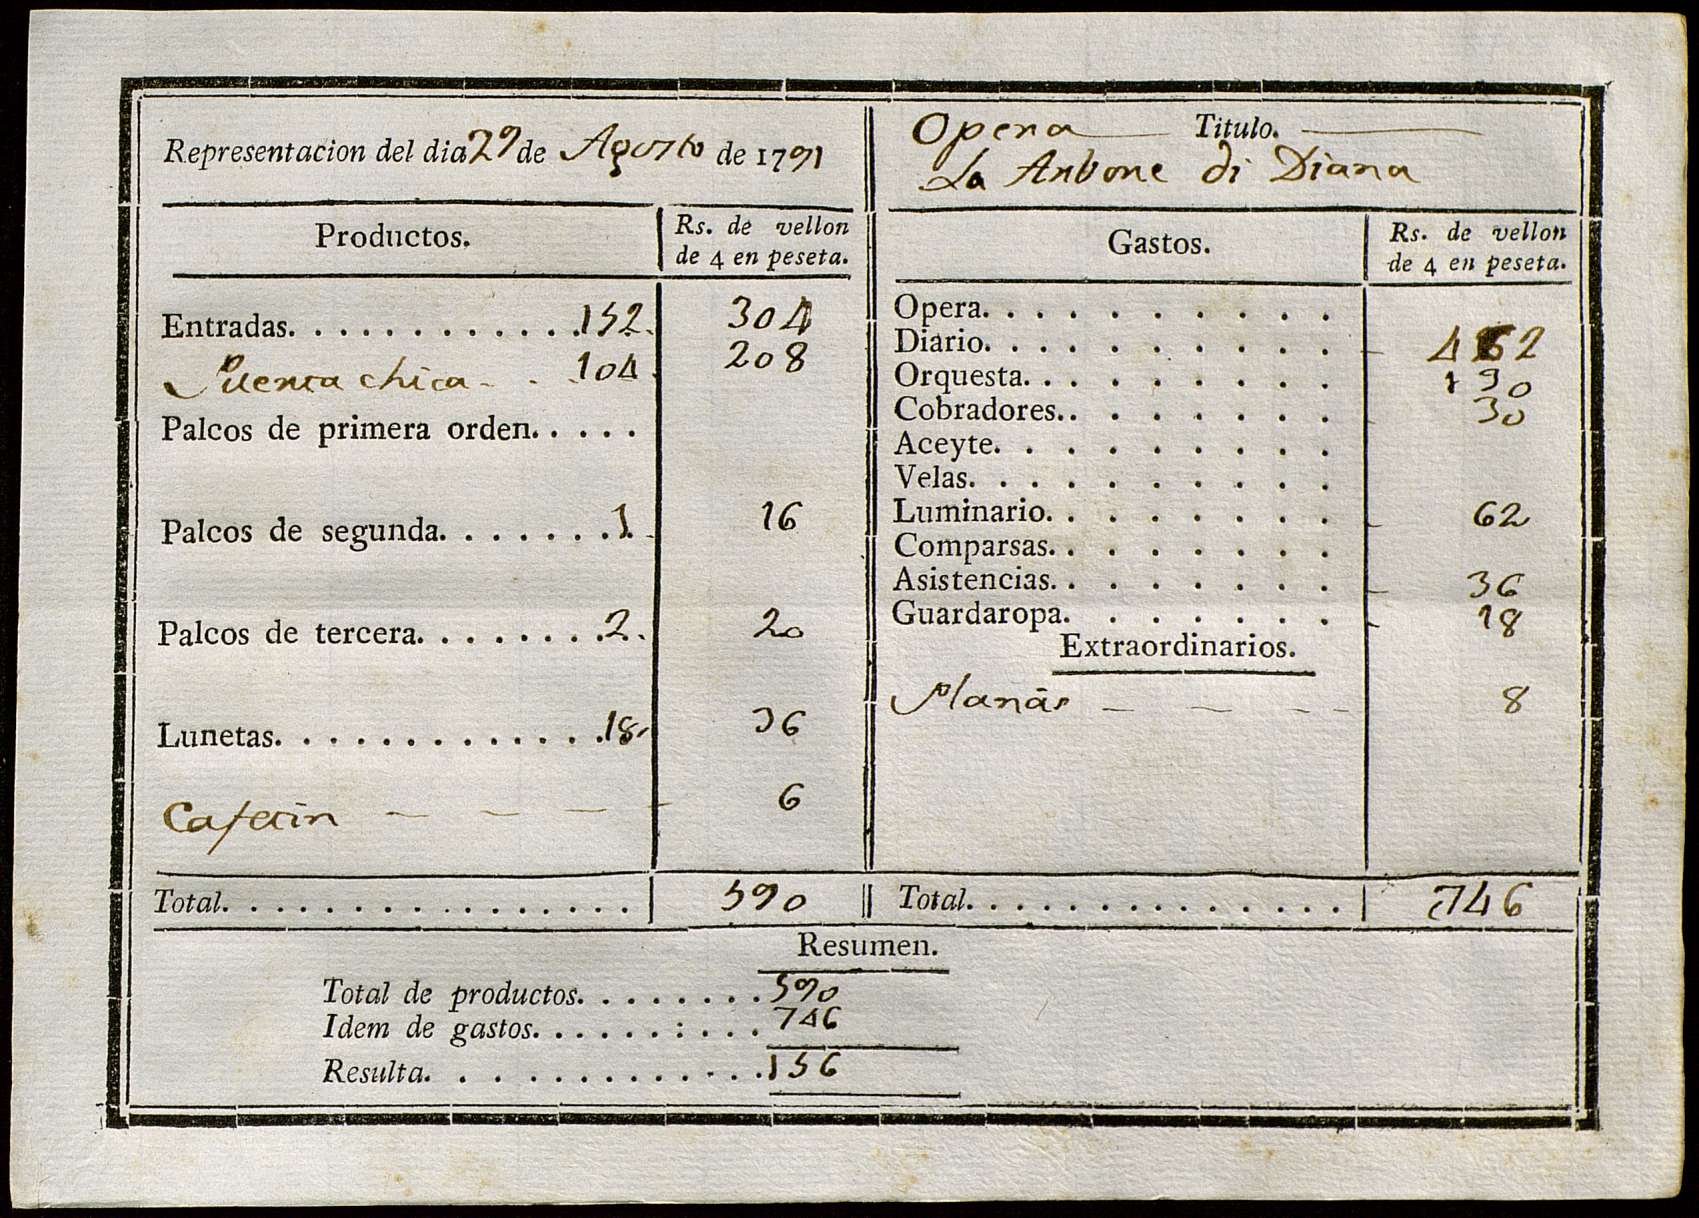 Representacion del dia 29 de Agosto de 1791
Productos.
Rs. de vellon
de 4 en peseta.
Entradas. . . . . . . . . . . . 152. 304
Puerta chica - . . 104. 208
Palcos de primera orden. . . . .
Palcos de segunda. . . . . . . 1. 16
Palcos de tercera. . . . . . . . 2. 20
Lunetas. . . . . . . . . . . . . 18. 36
Cafetin — — — — 6
Total. . . . . . . . . . . . . . . . 590
Opera — Titulo. —
La Arbore di Diana
Gastos.
Rs. de vellon
de 4 en peseta.
Opera. . . . . . . . . .
Diario. . . . . . . . . . 462
Orquesta. . . . . . . . . 130
Cobradores. . . . . . . . 30
Aceyte. . . . . . . . . .
Velas. . . . . . . . . .
Luminario. . . . . . . . 62
Comparsas. . . . . . . .
Asistencias. . . . . . . . 36
Guardaropa. . . . . . . 18
Extraordinarios.
Planas — — - - 8
Total. . . . . . . . . . . . . . . 746
Resumen.
Total de productos. . . . . . . . 590
Idem de gastos. . . . . . : . . . 746
Resulta. . . . . . . . . . . . . 156